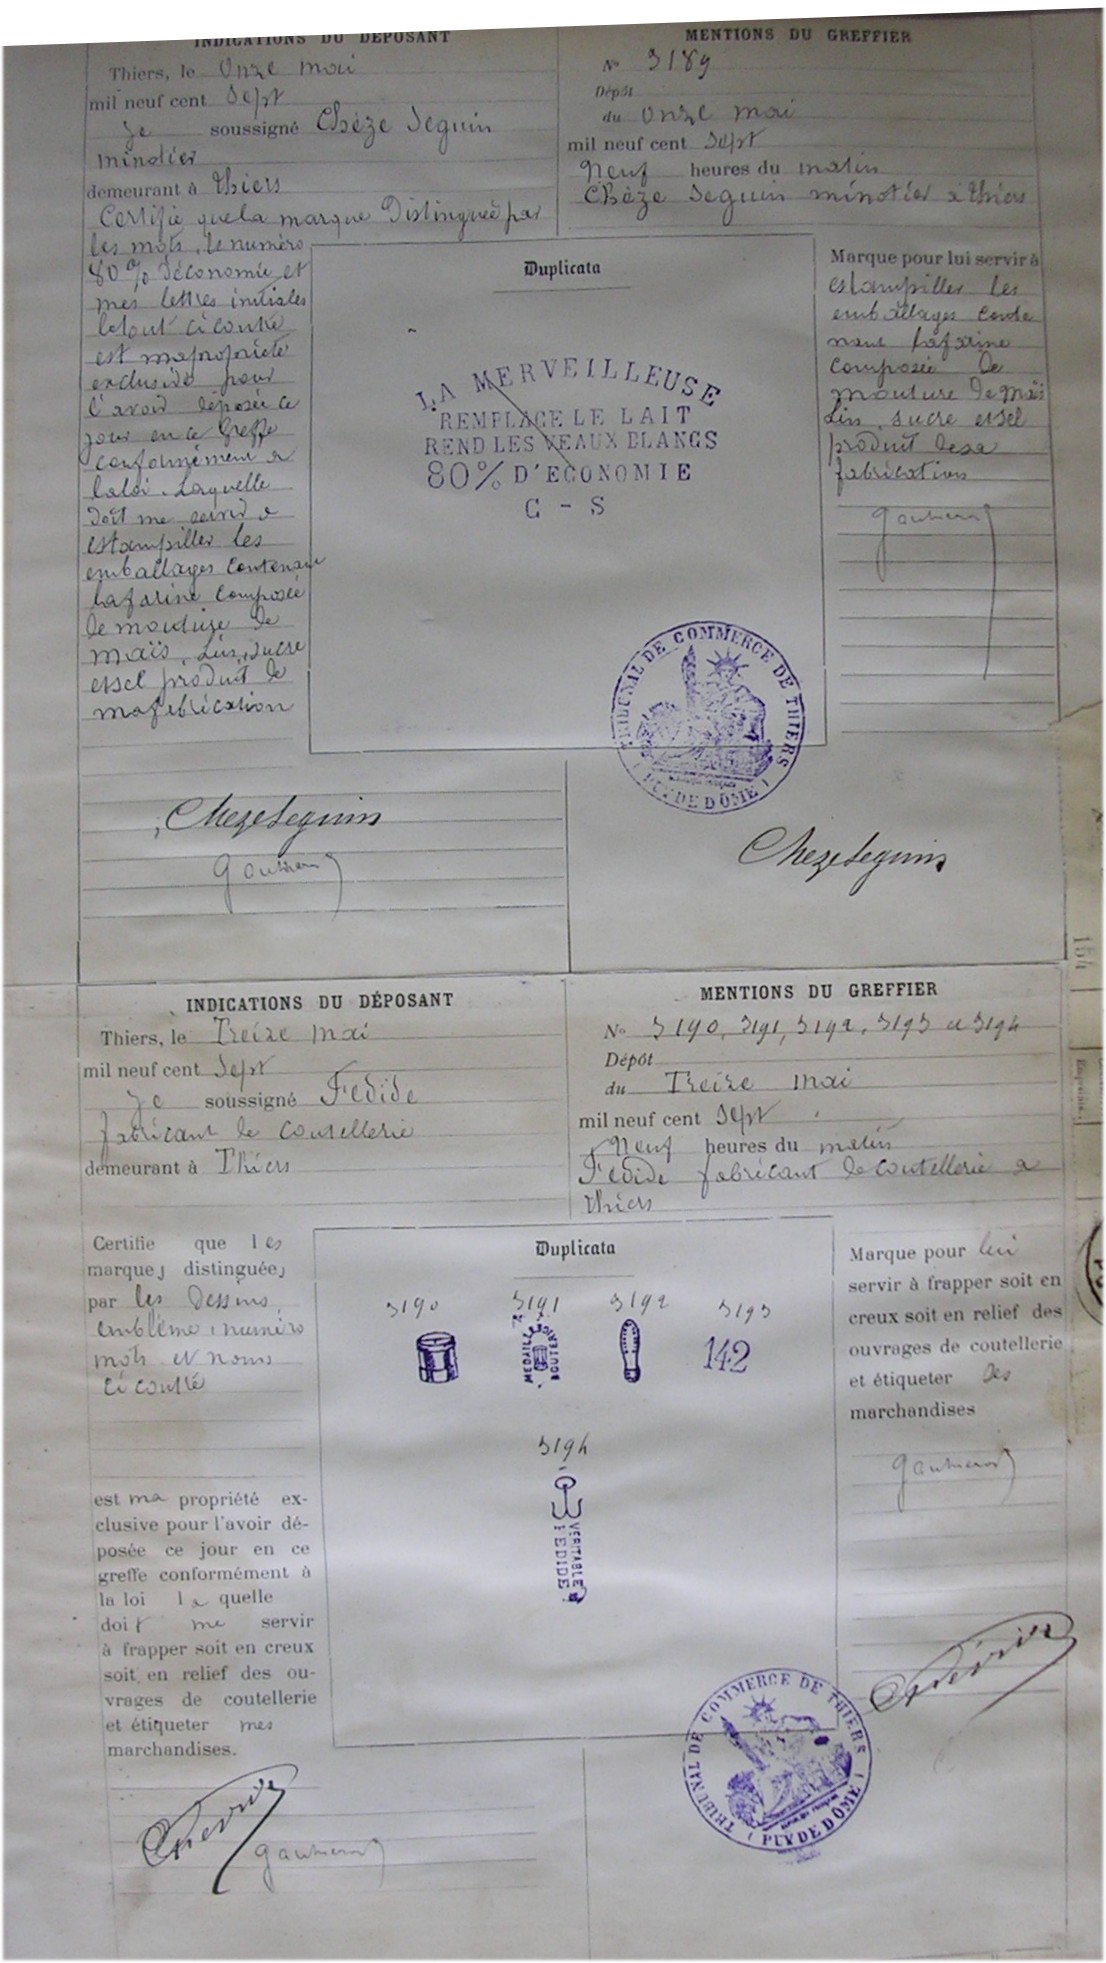 INDICATIONS DU DÉPOSANT
Thiers, le Onze mai
mil neuf cent Sept
Je soussigné Chèze Seguin
minotier
demeurant à Thiers
Certifie que la marque Distinguée par
les mots, le numéro
80% d'économie et
mes lettres initiales
le tout ci contre
est ma propriété
exclusive pour
l'avoir déposée ce
jour en ce Greffe
conformément à
la loi. Laquelle
doit me servir à
estampiller les
emballages contenant
la farine composée
de mouture de
maïs, Lin, sucre
et sel produit de
ma fabrication
Chezeseguin
MENTIONS DU GREFFIER
No 3189
Dépôt
du onze mai
mil neuf cent Sept
Neuf heures du matin
Chèze Seguin minotier à Thiers
Duplicata
LA MERVEILLEUSE
REMPLACE LE LAIT
REND LES VEAUX BLANCS
80% D'ECONOMIE
C - S
Marque pour lui servir à
estampiller les
emballages conte
nant la farine
composée de
mouture de maïs
Lin, sucre et sel
produit de sa
fabrication
TRIBUNAL DE COMMERCE DE THIERS
(PUY DE DÔME)
Chezeseguin
INDICATIONS DU DÉPOSANT
Thiers, le Treize mai
mil neuf cent Sept
Je soussigné Fédide
fabricant de coutellerie
demeurant à Thiers
MENTIONS DU GREFFIER
No 3190, 3191, 3192, 3193 et 3194
Dépôt
du Treize mai
mil neuf cent Sept
Neuf heures du matin
Fédide fabricant de coutellerie à
Thiers
Certifie que les
marques distinguées
par les Dessins,
emblème, numéro
mots et noms
ci contre
est ma propriété ex-
clusive pour l'avoir dé-
posée ce jour en ce
greffe conformément à
la loi la quelle
doit me servir
à frapper soit en creux
soit en relief des ou-
vrages de coutellerie
et étiqueter mes
marchandises.
Duplicata
3190 3191 3192 3193
MEDAILLE
142
3194
VERITABLE
FEDIDE
Marque pour lui
servir à frapper soit en
creux soit en relief des
ouvrages de coutellerie
et étiqueter Ses
marchandises
TRIBUNAL DE COMMERCE DE THIERS
(PUY DE DÔME)
154